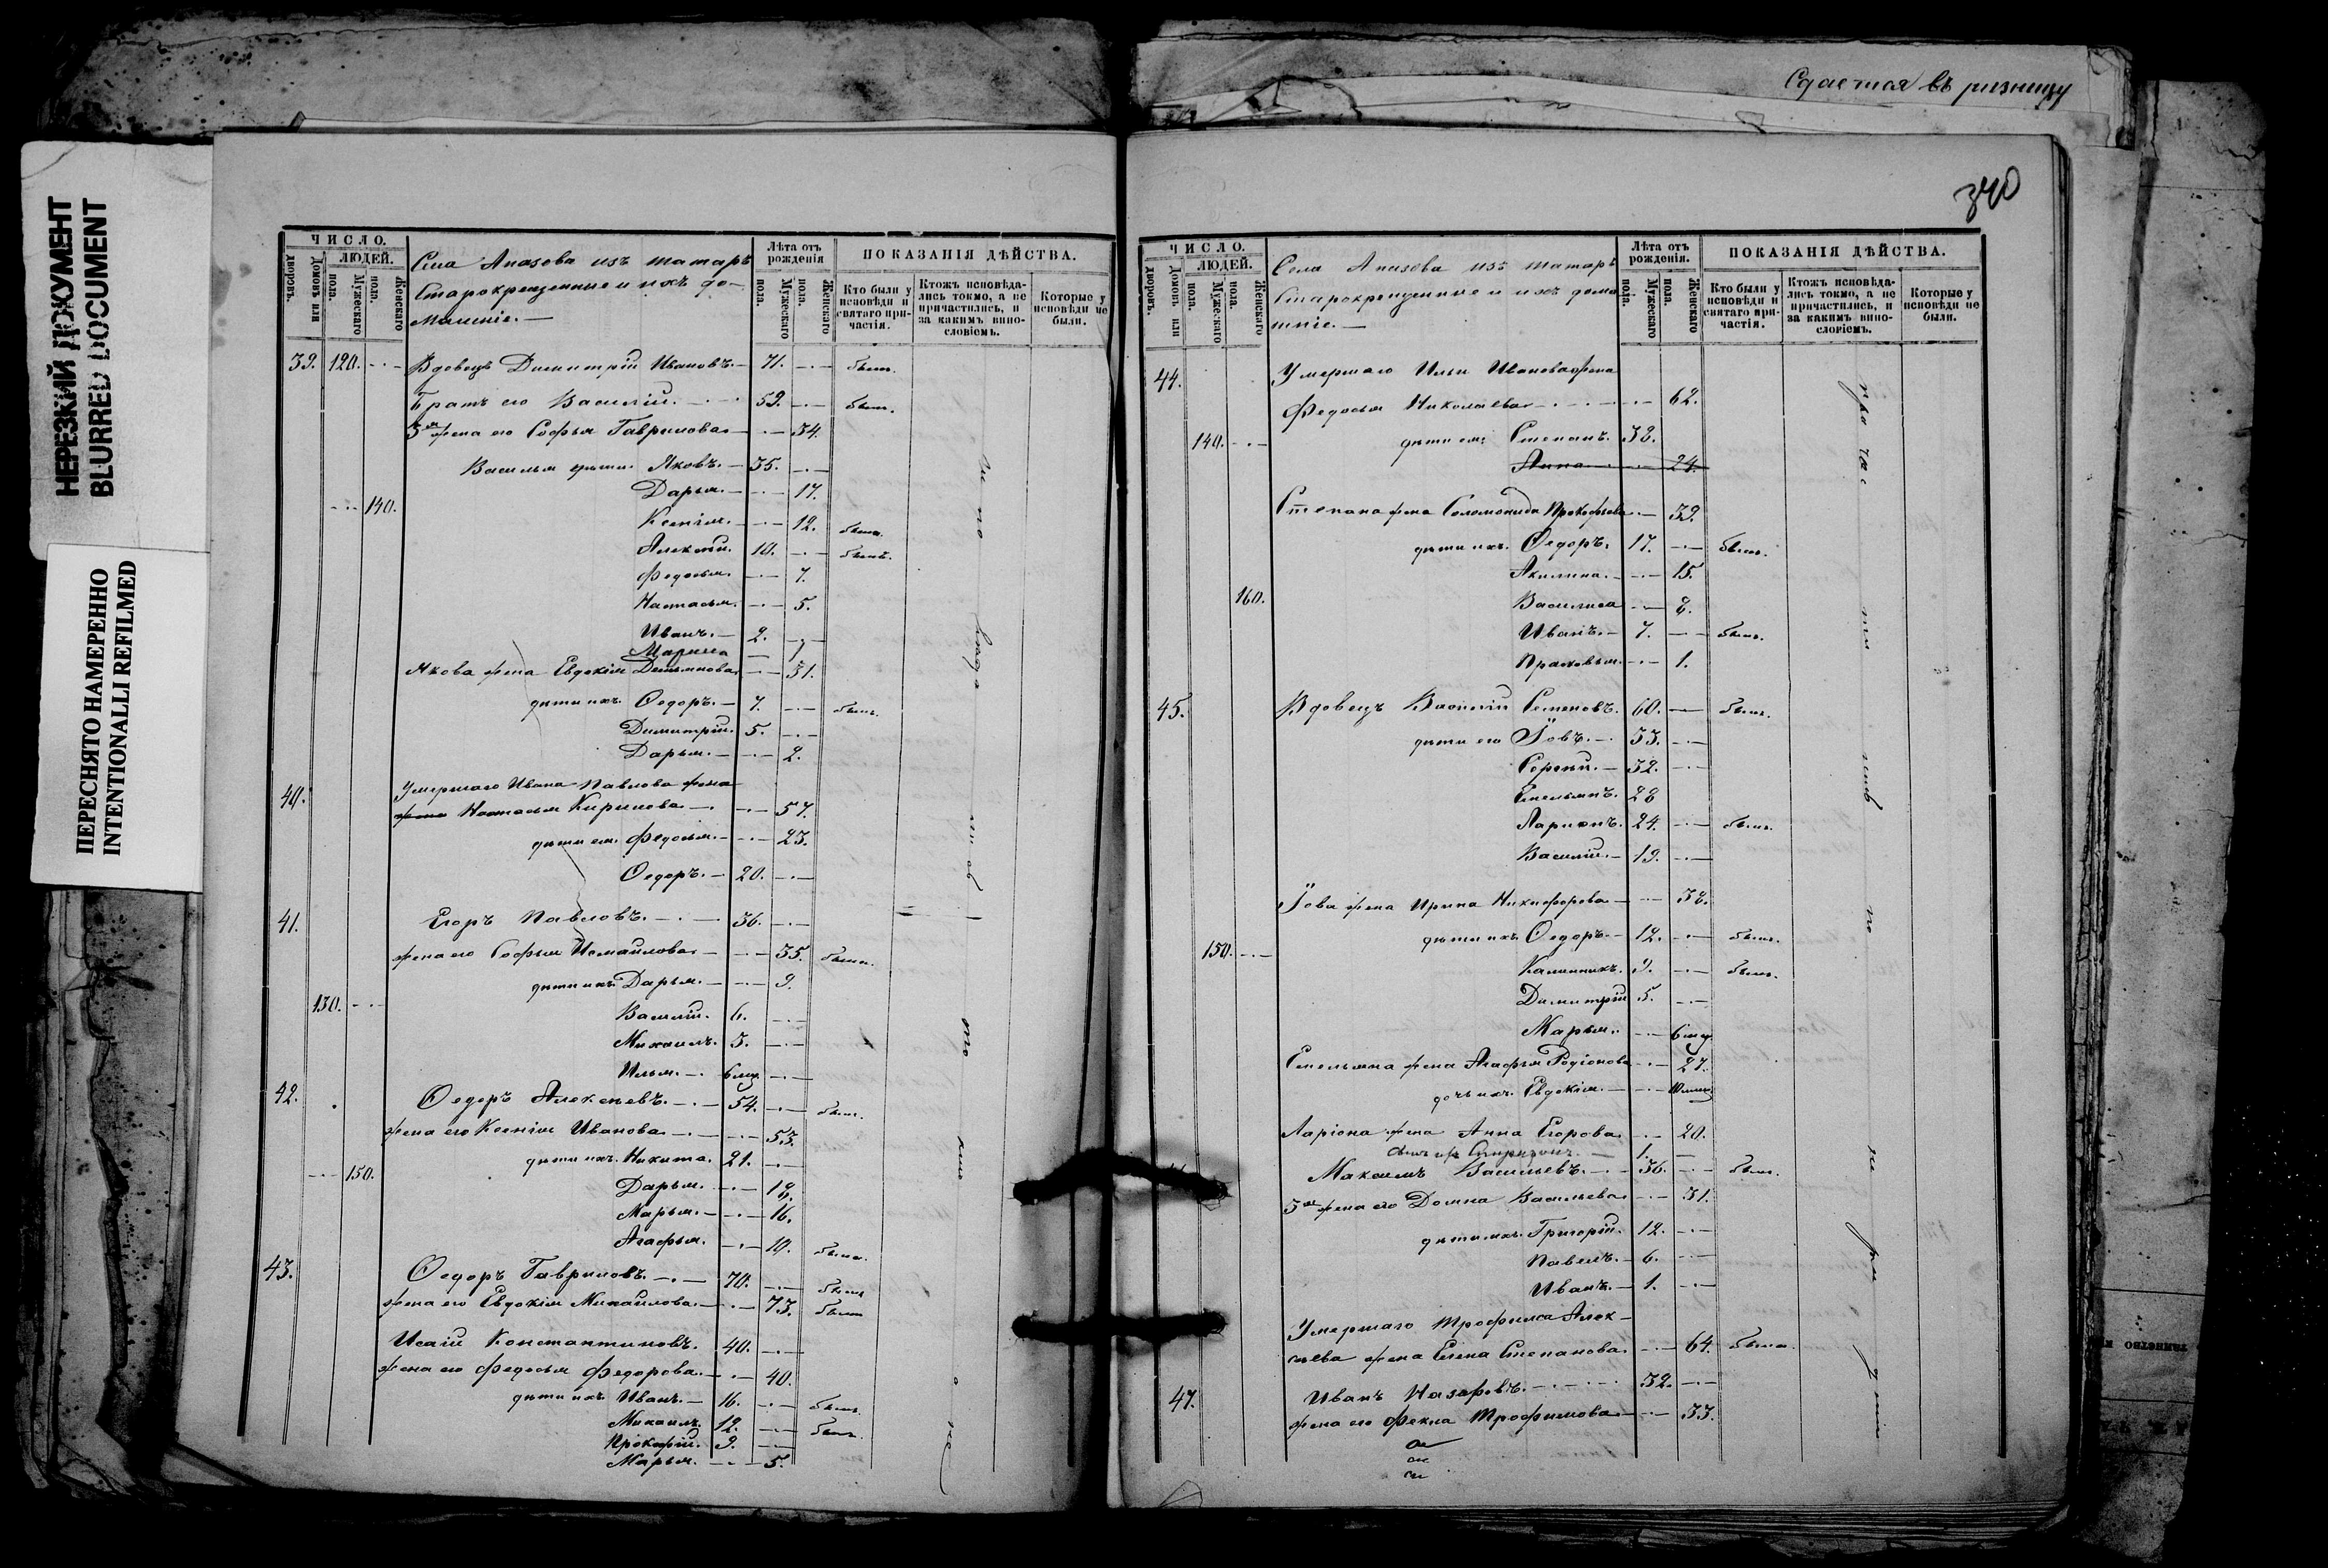 Сдается въ ризницу
340
НЕРЕЗКИЙ ДОКУМЕНТ
BLURRED DOCUMENT
ПЕРЕСНЯТО НАМЕРЕННО
INTENTIONALLI REFILMED
ЧИСЛО.
ЛЮДЕЙ.
Домовъ или дворовъ.
Мужескаго пола.
Женскаго пола.
Села Апазова изъ татаръ
Старокрещенные и ихъ до-
машніе.
Лѣта отъ рожденія
Мужескаго пола.
Женскаго пола.
ПОКАЗАНІЯ ДѢЙСТВА.
Кто были у исповѣди и святаго причастія.
Ктожъ исповѣдались токмо, а не причастились, и за какимъ винословіемъ.
Которые у исповѣди не были.
39. 120. Вдовецъ Димитрій Ивановъ. 71. былъ.
Братъ его Василій. 59. былъ.
3я жена его Софья Гаврилова 34.
Василья дѣти: Яковъ. 35.
Дарья. 17.
140. Ксенія. 12. была.
Алексѣй. 10. былъ.
Федосья. 7.
Настасья. 5.
Иванъ. 2.
Марина 1
Якова жена Евдокія Демьянова 31.
дѣти ихъ: Ѳедоръ. 7. былъ.
Димитрій. 5.
Дарья. 2.
40. Умершаго Ивана Павлова жена
жена Настасья Кирилова 57.
дѣти ея: Федосья. 23.
Ѳедоръ. 20.
41. Егоръ Павловъ. 36.
жена его Софья Исмайлова 35. была.
дѣти ихъ: Дарья. 9.
130. Василій. 6.
Михаилъ. 3.
Илья. 6 мѣс.
42. Ѳедоръ Алексѣевъ. 54. былъ.
жена его Ксенія Иванова 53.
дѣти ихъ: Никита. 21.
150. Дарья. 18.
Марья. 16.
Агафья. 10. была.
43. Ѳедоръ Гавриловъ. 70. былъ
жена его Евдокія Михайлова 73. была
Исаій Константиновъ. 40.
жена его Федосья Федорова 40.
дѣти ихъ: Иванъ. 16. былъ.
Михаилъ. 12. былъ.
Прокофій. 9.
Марья. 5.
ЧИСЛО.
ЛЮДЕЙ.
Домовъ или дворовъ.
Мужескаго пола.
Женскаго пола.
Села Апазова изъ татаръ
Старокрещенные и ихъ дома-
шніе.
Лѣта отъ рожденія.
Мужескаго пола.
Женскаго пола.
ПОКАЗАНІЯ ДѢЙСТВА.
Кто были у исповѣди и святаго причастія.
Ктожъ исповѣдались токмо, а не причастились, и за какимъ винословіемъ.
Которые у исповѣди не были.
44. Умершаго Ильи Иванова жена
Федосья Николаева 62.
140. дѣти ея: Степанъ. 38.
Анна 24.
Степана жена Соломонида Прокофьева 39.
дѣти ихъ: Ѳедоръ. 17. былъ.
Акилина. 15.
160. Василиса 8.
Иванъ. 7. былъ.
Прасковья. 1.
45. Вдовецъ Василій Семеновъ. 60. былъ.
дѣти его Іовъ. 33.
Сергѣй. 32.
Емельянъ. 28
Ларіонъ. 24. былъ.
Василій. 19.
Іова жена Ирина Никифорова 38.
дѣти ихъ: Ѳедоръ. 12. былъ.
150. Калинникъ. 9. былъ.
Димитрій 5.
Марья. 6 мѣс.
Емельяна жена Агафья Родіонова 27.
дочь ихъ: Евдокія.
Ларіона жена Анна Егорова 20.
1.
Максимъ Васильевъ. 36. былъ.
3я жена его Домна Васильева 31.
дѣти ихъ: Григорій. 12.
Павелъ. 6.
Иванъ. 1.
Умершаго Трофима Алек-
сѣева жена Елена Степанова 64. была.
47. Иванъ Назаровъ. 32.
жена его Фекла Трофимова 33.